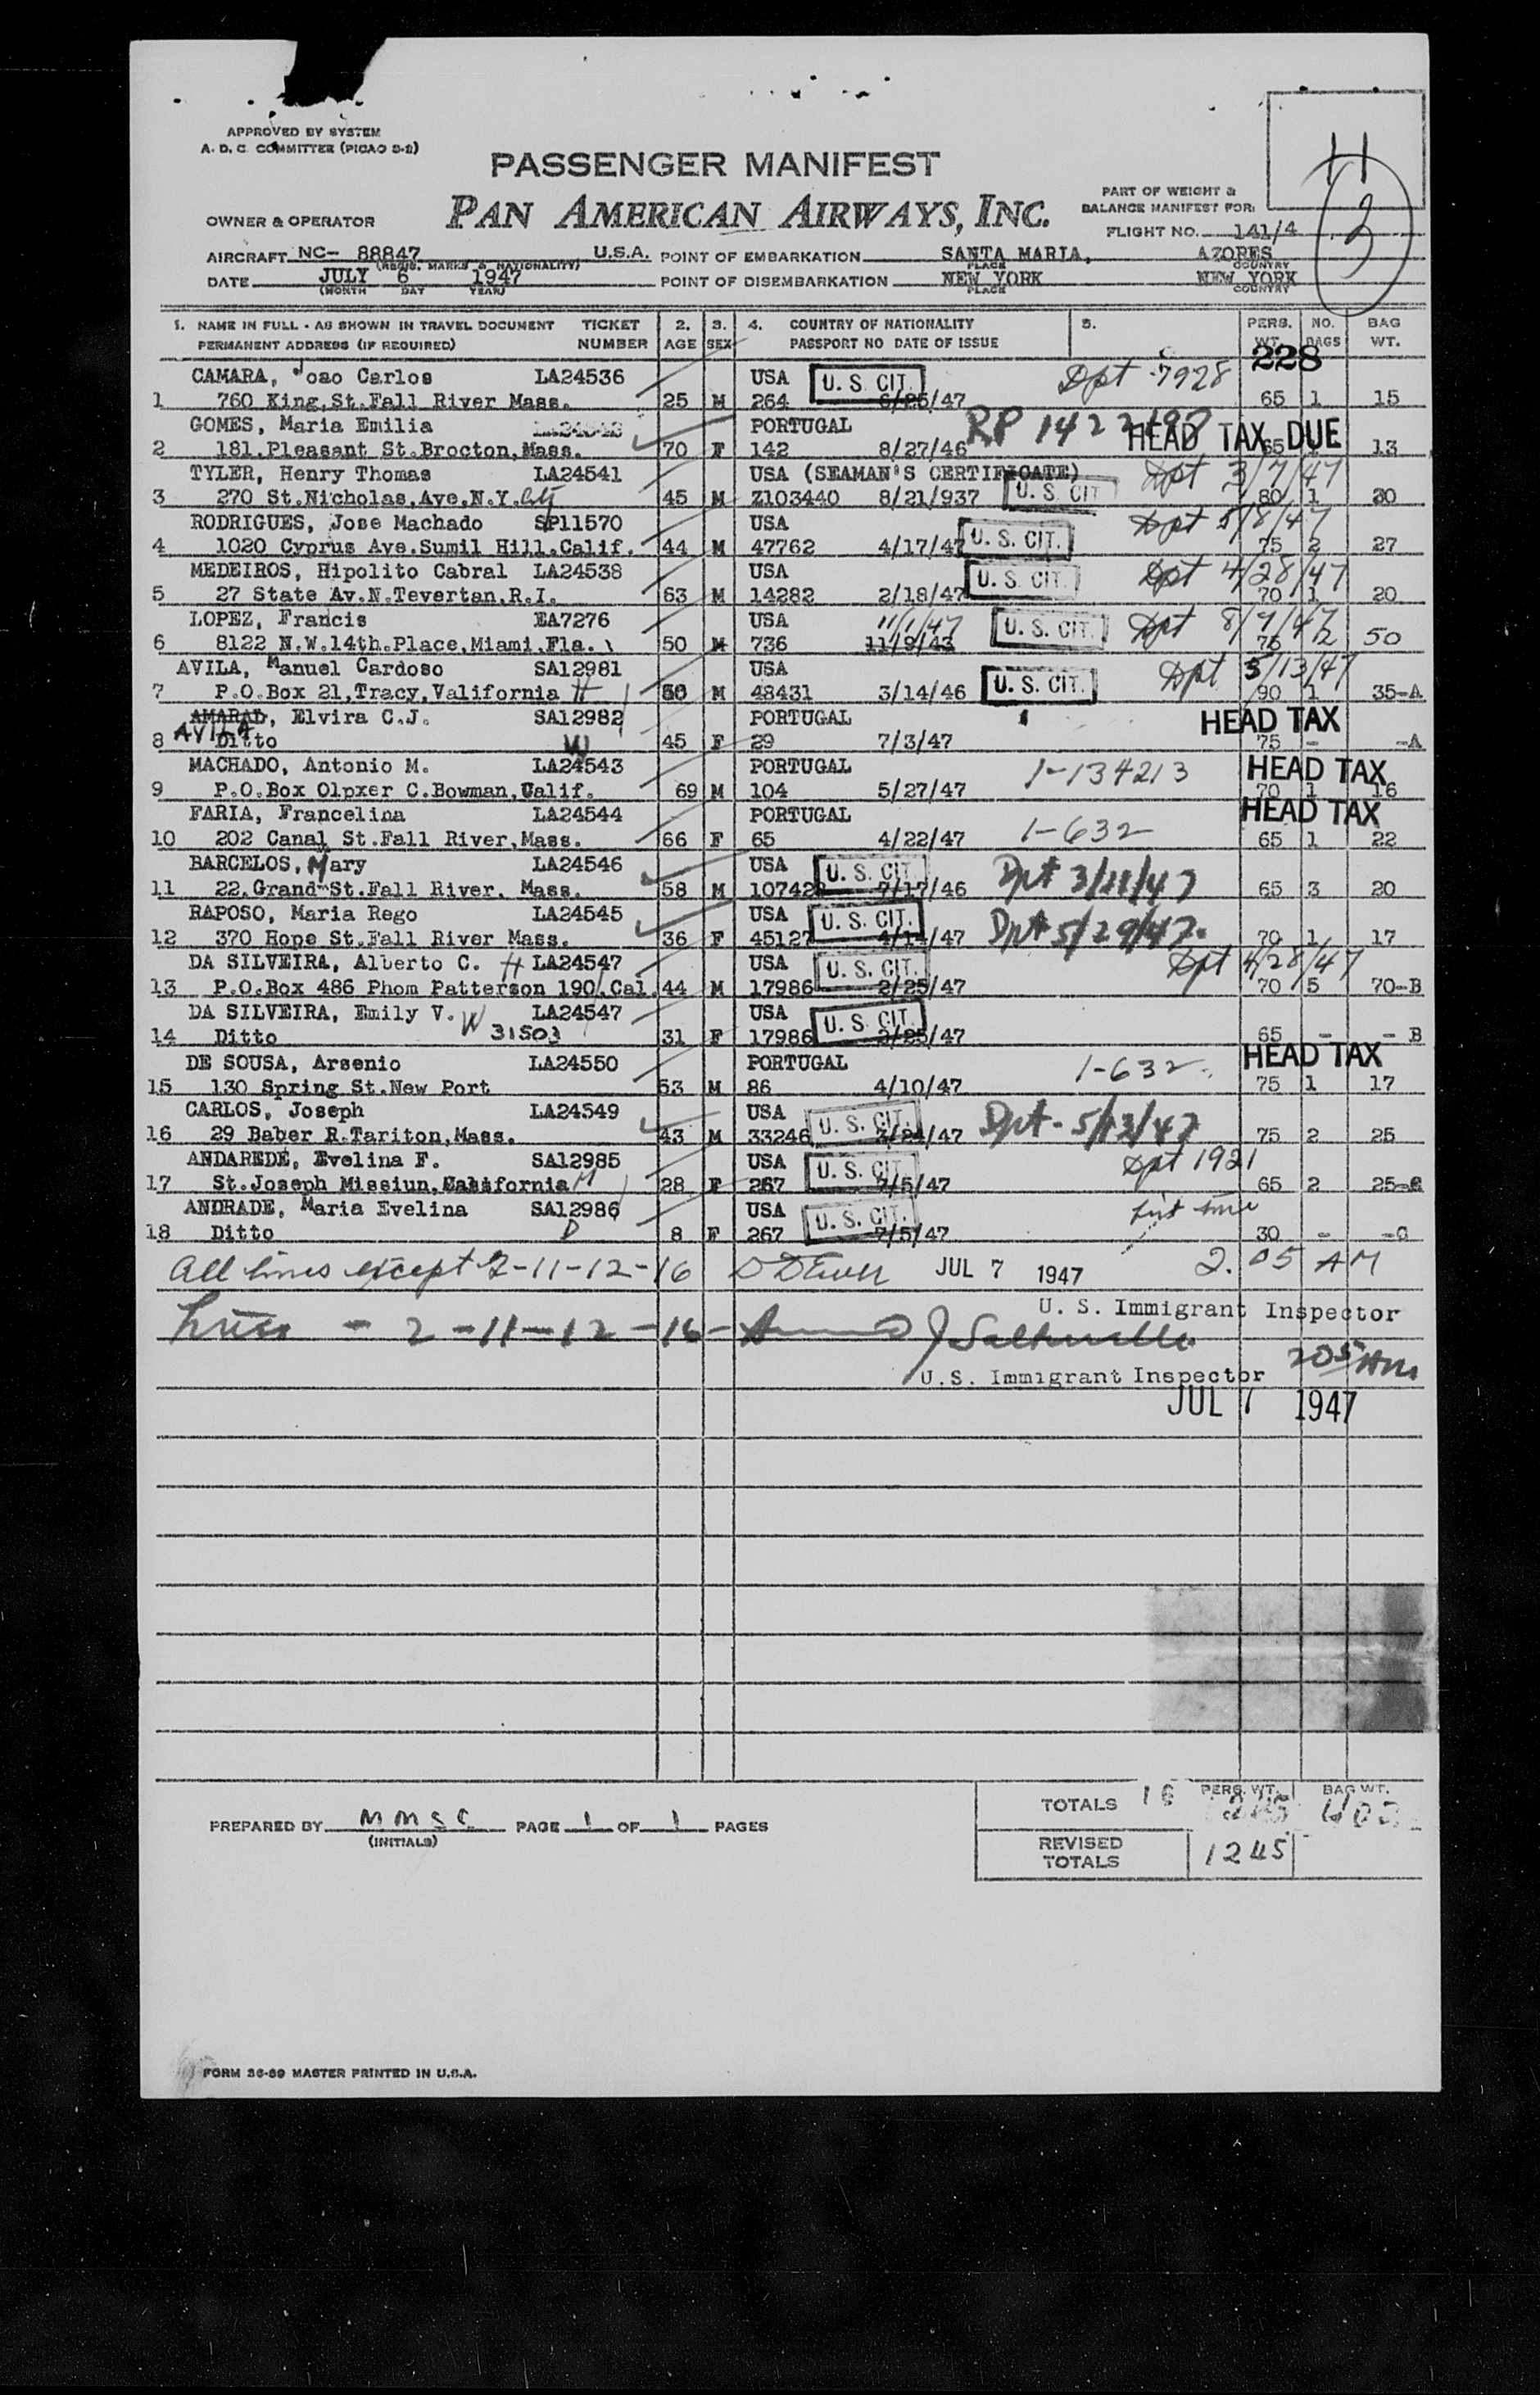 APPROVED BY SYSTEM
A. D. C. COMMITTER (PICAO S-2)
PASSENGER MANIFEST
11
3
PART OF WEIGHT &
BALANCE MANIFEST FOR:
OWNER & OPERATOR PAN AMERICAN AIRWAYS, INC.
FLIGHT NO. 141/4
AIRCRAFT NC- 88847 U.S.A. POINT OF EMBARKATION SANTA MARIA, AZORES
(REGIS. MARKS & NATIONALITY) PLACE COUNTRY
DATE JULY 6 1947 POINT OF DISEMBARKATION NEW YORK NEW YORK
(MONTH DAY YEAR) PLACE COUNTRY
1. NAME IN FULL - AS SHOWN IN TRAVEL DOCUMENT TICKET 2. 3. 4. COUNTRY OF NATIONALITY 5. PERS. NO. BAG
PERMANENT ADDRESS (IF REQUIRED) NUMBER AGE SEX PASSPORT NO DATE OF ISSUE WT. BAGS WT.
228
CAMARA, Joao Carlos LA24536 USA U. S. CIT. Dpt 7928
1 760 King.St.Fall River Mass. 25 M 264 6/25/47 65 1 15
GOMES, Maria Emilia PORTUGAL RP HEAD TAX DUE
2 181.Pleasant St.Brocton,Mass. 70 F 142 8/27/46 65 13
TYLER, Henry Thomas LA24541 USA (SEAMAN'S CERTIFICATE) U. S. CIT Dpt 3/7/47
3 270 St.Nicholas.Ave.N.Y.City 45 M Z103440 8/21/937 80 1 20
RODRIGUES, Jose Machado SP11570 USA U. S. CIT. Dpt 5/8/47
4 1020 Cyprus Ave.Sumil Hill.Calif. 44 M 47762 4/17/47 75 2 27
MEDEIROS, Hipolito Cabral LA24538 USA U. S. CIT. Dpt 4/28/47
5 27 State Av.N.Tevertan.R.I. 63 M 14282 2/18/47 70 1 20
LOPEZ, Francis EA7276 USA 11/1/47 U. S. CIT. Dpt 8/9/47
6 8122 N.W.14th.Place,Miami.Fla. 50 M 736 11/9/43 75 2 50
AVILA, Manuel Cardoso SA12981 USA Dpt 5/13/47
7 P.O.Box 21,Tracy,Valifornia H 50 M 48431 3/14/46 U. S. CIT. 90 1 35-A
AMARAL, Elvira C.J. SA12982 PORTUGAL HEAD TAX
AVILA
8 Ditto W 45 F 29 7/3/47 75 - -A
MACHADO, Antonio M. LA24543 PORTUGAL 1-134213 HEAD TAX
9 P.O.Box Olpxer C.Bowman,Calif. 69 M 104 5/27/47 70 1 16
FARIA, Francelina LA24544 PORTUGAL HEAD TAX
10 202 Canal St.Fall River,Mass. 66 F 65 4/22/47 1-632 65 1 22
BARCELOS, Mary LA24546 USA U. S. CIT. Dpt 3/11/47
11 22.Grand St.Fall River. Mass. 58 M 107428 7/17/46 65 3 20
RAPOSO, Maria Rego LA24545 USA U. S. CIT. Dpt 5/29/47
12 370 Hope St.Fall River Mass. 36 F 45127 4/14/47 70 1 17
DA SILVEIRA, Alberto C. H LA24547 USA U. S. CIT. Dpt 4/28/47
13 P.O.Box 486 Phom Patterson 190.Cal. 44 M 17986 2/25/47 70 5 70-B
DA SILVEIRA, Emily V. W LA24547 USA U. S. CIT.
14 Ditto 31503 31 F 17986 2/25/47 65 - - B
DE SOUSA, Arsenio LA24550 PORTUGAL 1-632 HEAD TAX
15 130 Spring St.New Port 53 M 86 4/10/47 75 1 17
CARLOS, Joseph LA24549 USA U. S. CIT. Dpt - 5/13/47
16 29 Baber R.Tariton,Mass. 43 M 33246 3/24/47 75 2 25
ANDAREDE, Evelina F. SA12985 USA U. S. CIT. Dpt 1921
17 St.Joseph Missiun,California H 28 F 267 7/5/47 65 2 25-C
ANDRADE, Maria Evelina SA12986 USA U. S. CIT. first time
18 Ditto D 8 F 267 7/5/47 30 - -C
All lines except 2-11-12-16 JUL 7 1947 2.05 AM
U. S. Immigrant Inspector
Lines - 2-11-12-16-
U.S. Immigrant Inspector 205 AM
JUL 7 1947
TOTALS 18 PERS. WT. BAG WT.
PREPARED BY MMSC PAGE 1 OF 1 PAGES
(INITIALS)
REVISED TOTALS 1245
FORM 36-69 MASTER PRINTED IN U.S.A.